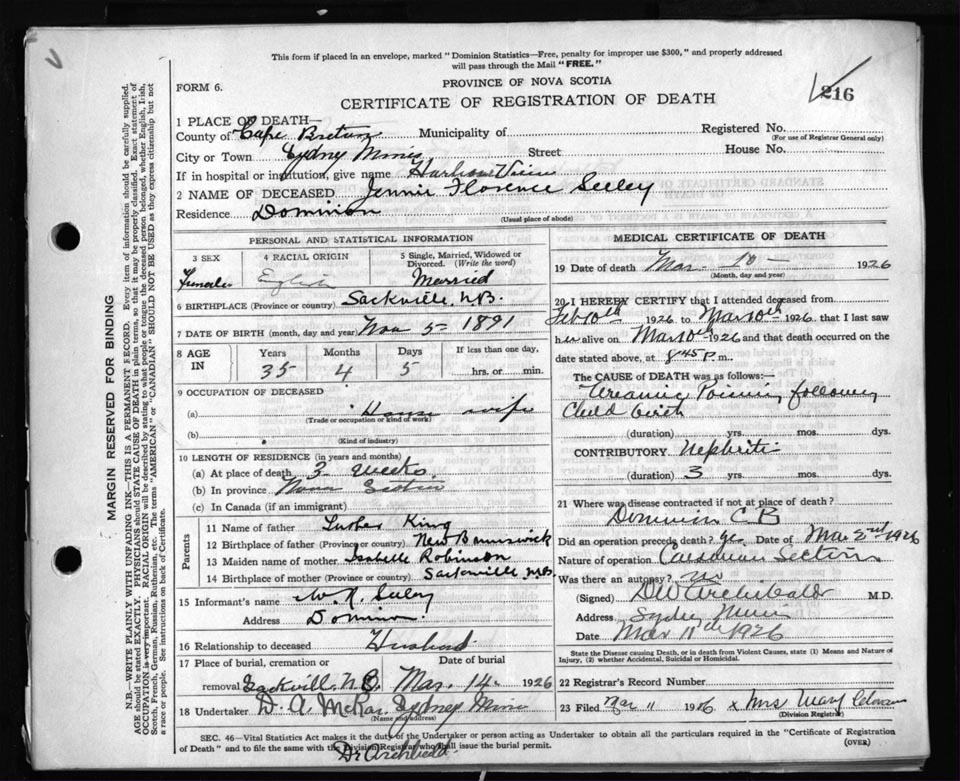 This form if placed in an envelope, marked "Dominion Statistics—Free, penalty for improper use $300," and properly addressed
will pass through the Mail "FREE."
PROVINCE OF NOVA SCOTIA
FORM 6.
CERTIFICATE OF REGISTRATION OF DEATH
216
1 PLACE OF DEATH—
County of Cape Breton Municipality of Registered No.
(For use of Registrar General only)
City or Town Sydney Mines Street House No.
If in hospital or institution, give name Harbour View
2 NAME OF DECEASED Jennie Florence Seeley
Residence Dominion
(Usual place of abode)
PERSONAL AND STATISTICAL INFORMATION
3 SEX 4 RACIAL ORIGIN 5 Single, Married, Widowed or
Divorced. (Write the word)
Female English Married
6 BIRTHPLACE (Province or country) Sackville, N.B.
7 DATE OF BIRTH (month, day and year) Nov 5 1891
8 AGE IN Years Months Days If less than one day,
35 4 5 hrs. or min.
9 OCCUPATION OF DECEASED
(a) House wife
(Trade or occupation or kind of work)
(b)
(Kind of industry)
10 LENGTH OF RESIDENCE (in years and months)
(a) At place of death 3 weeks
(b) In province Nova Scotia
(c) In Canada (if an immigrant)
Parents
11 Name of father Luther King
12 Birthplace of father (Province or country) New Brunswick
13 Maiden name of mother Isabelle Robinson
14 Birthplace of mother (Province or country) Sackville N.B.
15 Informant's name Seeley
Address Dominion
16 Relationship to deceased Husband
17 Place of burial, cremation or Date of burial
removal Sackville N.B. Mar. 14 1926
18 Undertaker D. A. McRae Sydney Mines
(Name and address)
MEDICAL CERTIFICATE OF DEATH
19 Date of death Mar 10 1926
(Month, day and year)
20 I HEREBY CERTIFY that I attended deceased from
Feb 10th 1926 to Mar 10th 1926, that I last saw
her alive on Mar 10th 1926 and that death occurred on the
date stated above, at 8.45 P.m.
The CAUSE OF DEATH was as follows:—
Uraemic Poisoning following
Child birth
(duration) yrs. mos. dys.
CONTRIBUTORY Nephritis
(duration) 3 yrs. mos. dys.
21 Where was disease contracted if not at place of death?
Dominion C B
Did an operation precede death? yes Date of Mar 2nd 1926
Nature of operation Caesarean Section
Was there an autopsy? no
(Signed) D W Archibald M.D.
Address Sydney Mines
Date Mar 11th 1926
State the Disease causing Death, or in death from Violent Causes, state (1) Means and Nature of
Injury, (2) whether Accidental, Suicidal or Homicidal.
22 Registrar's Record Number
23 Filed Mar 11 1926 x Mrs Mary
(Division Registrar)
SEC. 46—Vital Statistics Act makes it the duty of the Undertaker or person acting as Undertaker to obtain all the particulars required in the "Certificate of Registration
of Death" and to file the same with the Division Registrar who shall issue the burial permit. (OVER)
Dr Archibald
MARGIN RESERVED FOR BINDING
N.B.—WRITE PLAINLY WITH UNFADING INK—THIS IS A PERMANENT RECORD. Every item of information should be carefully supplied.
AGE should be stated EXACTLY. PHYSICIANS should STATE CAUSE OF DEATH in plain terms, so that it may be properly classified. Exact statement of
OCCUPATION is very important. RACIAL ORIGIN will be described by stating to what people or tongue the deceased person belonged, whether English, Irish,
Scotch, French, German, Russian, Ruthenian, etc. The terms "AMERICAN" or "CANADIAN" SHOULD NOT BE USED as they express citizenship but not
a race or people. See instructions on back of Certificate.